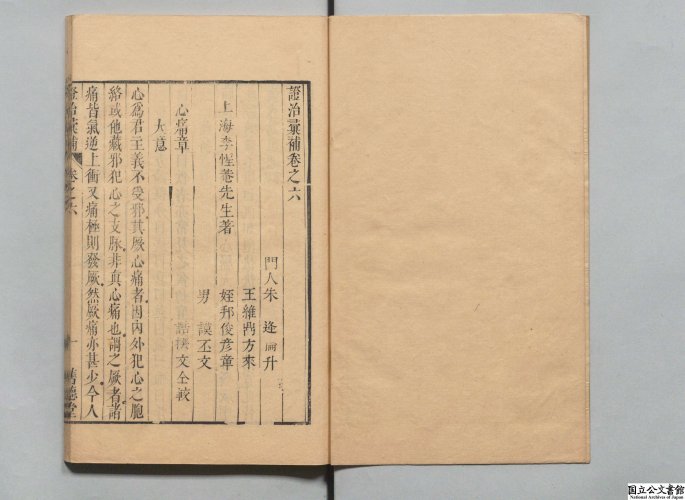 證治彙補卷之六
門人朱 逢 升
王維 方來
上海李惺菴先生著
姪邦俊彦章
男 謨丕文
文全較
心痛章
大意
心為君主義不受邪其厥心痛者因内外犯心之胞
絡或他藏邪犯心之支脉非真心痛也謂之厥者諸
痛皆氣逆上衝又痛極則發厥然厥痛亦甚少今人
證治彙補 卷之六 一
國立公文書館
National Archives of Japan